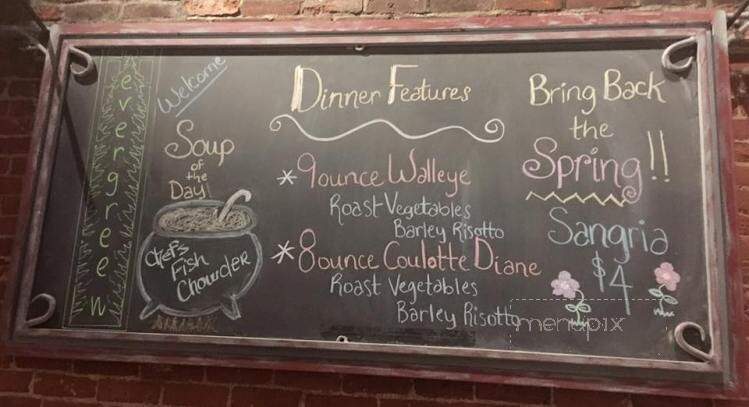 evergreen
Welcome
Soup
of
the
Day
Chef's
Fish
Chowder
Dinner Features
*9ounce Walleye
Roast Vegetables
Barley Risotto
*8ounce Coulotte Diane
Roast Vegetables
Barley Risotto
Bring Back
the
Spring!!
Sangria
$4
menupix